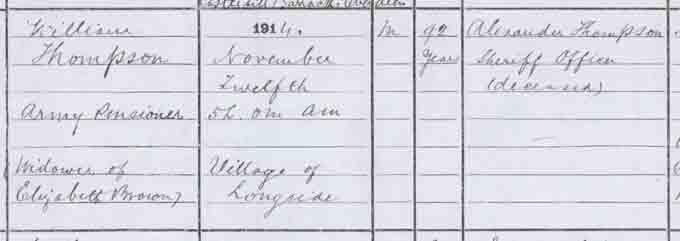 Castlehill Barracks Aberdeen
William 1914. M 92 Alexander Thompson
Thompson November Years Sheriff Officer
Twelfth (deceased)
Army Pensioner 5h. 0m am
(Widower of Village of
Elizabeth Brown) Longside